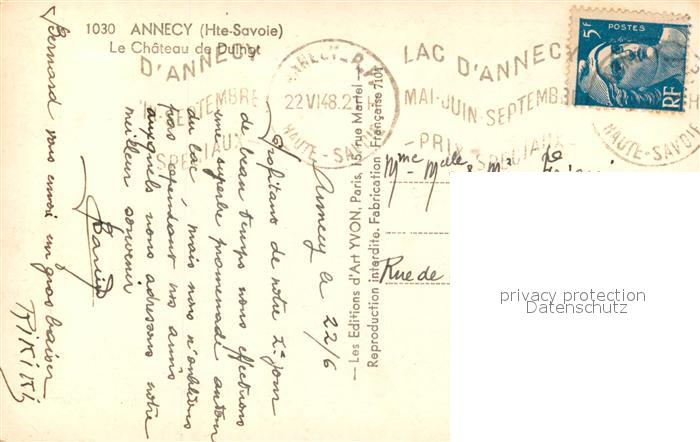 1030 ANNECY (Hte-Savoie)
Le Château de Duingt
D'ANNECY
SPECIAUX
ANNECY-R.P.
22 VI 48
HAUTE-SAVOIE
LAC D'ANNECY
MAI-JUIN-SEPTEMBRE
PRIX SPECIAUX
POSTES
5F
RF
HAUTE-SAVOIE
Annecy le 22/6
Profitons de notre 2e jour
de beau temps nous effectuons
une superbe promenade autour
du lac, mais nous n'oublions
pas cependant nos amis
auxquels nous adressons notre
meilleur souvenir
Bernard vous envoie un gros baiser
— Les Editions d'Art YVON, Paris, 15, rue Martel —
Reproduction interdite. Fabrication Française 7101
Mme Melle & Mr
Rue de
privacy protection
Datenschutz